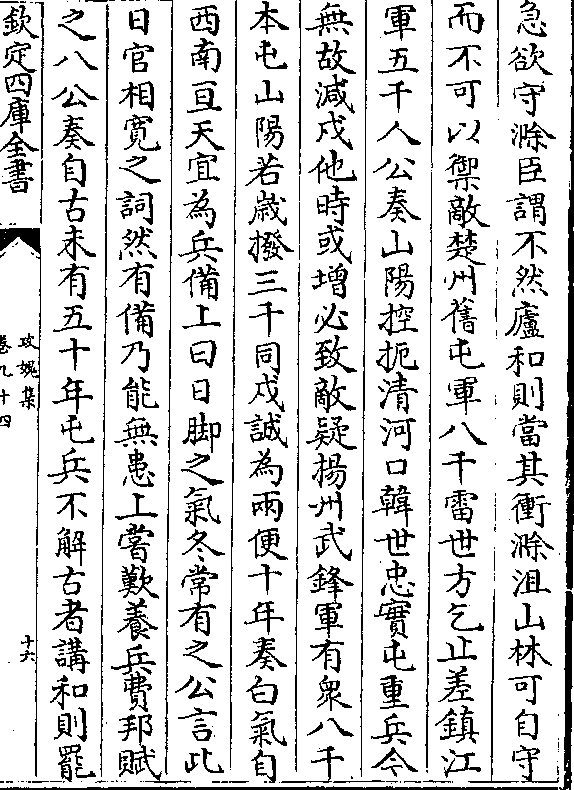 急欲守滁臣謂不然廬和則當其衝滁沮山林可自守
而不可以禦敵楚州舊屯軍八千雷世方乞止差鎮江
軍五千人公奏山陽控扼清河口韓世忠實屯重兵今
無故減戍他時或增必致敵疑揚州武鋒軍有衆八千
本屯山陽若歳撥三千同戍誠為兩便十年奏白氣自
西南亘天宜為兵備上曰日脚之氣冬常有之公言此
日官相寛之詞然有備乃能無患上嘗歎養兵費邦賦
之八公奏自古未有五十年屯兵不解古者講和則罷
欽定四庫全書
攻媿集
卷九十四
十六